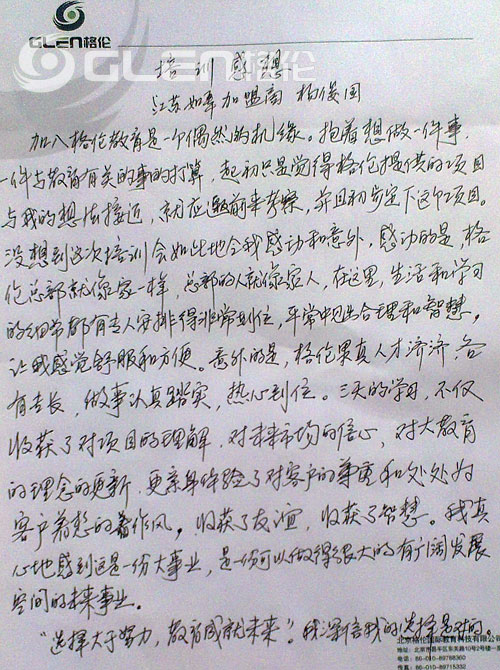 GLEN格伦
GLEN格伦
培训感想
江苏如皋加盟商 柏俊国
加入格伦教育是一个偶然的机缘。抱着想做一件事，
一件与教育有关的事的打算，起初只是觉得格伦提供的项目
与我的想法接近，就应邀前来考察，并且初步定下这个项目。
没想到这次培训会如此地令我感动和意外，感动的是，格
伦总部就像家一样，总部的人就像家人，在这里，生活和学习
的细节都有专人安排得非常到位，平常中见出合理和智慧，
让我感觉舒服和方便。意外的是，格伦果真人才济济，各
有专长，做事认真踏实，热心到位。三天的学习，不仅
收获了对项目的理解，对未来市场的信心，对大教育
的理念的更新，更亲身体验了对客户的尊重和处处为
客户着想的着作风，收获了友谊，收获了智慧。我真
心地感到这是一份大事业，是一份可以做得很大的有广阔发展
空间的未来事业。
“选择大于努力，教育成就未来”。我深信我的选择是对的。
北京格伦国际教育科技有限公司
地址：北京市昌平区东关路10号2号楼
电话：86-010-89788360
传真：86-010-89715352